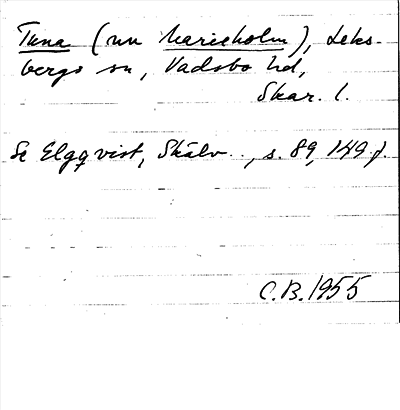 Tuna (nu Marieholm), Leks-
bergs sn, Vadsbo hd,
Skar. l.
Se Elgqvist, Skälv.., s. 89, 149 f.
C.B. 1955